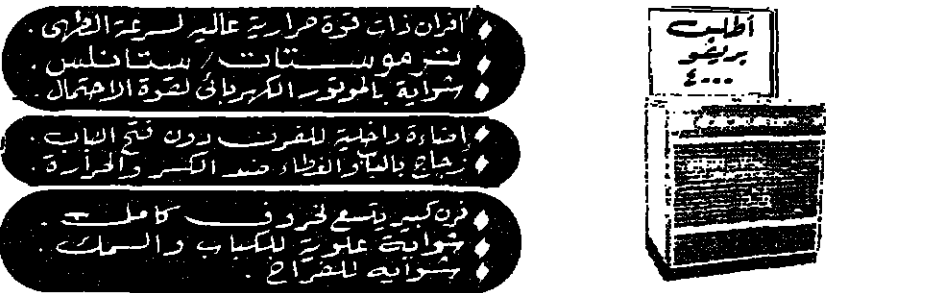 أفران ذات قوة حرارية عاليه لسرعة الطهى .
ترموستات / ستانلس .
شواية بالموتور الكهربائى لقوة الاحتمال .
إضاءة داخلية للفرن دون فتح الباب .
زجاج والغطاء ضد الكسر والحرارة .
فرن كبير يتسع لخروف كامل .
شواية علوية للكباب والسمك .
شوايه للفراخ .
أطلب
بريفو
٤٠٠٠